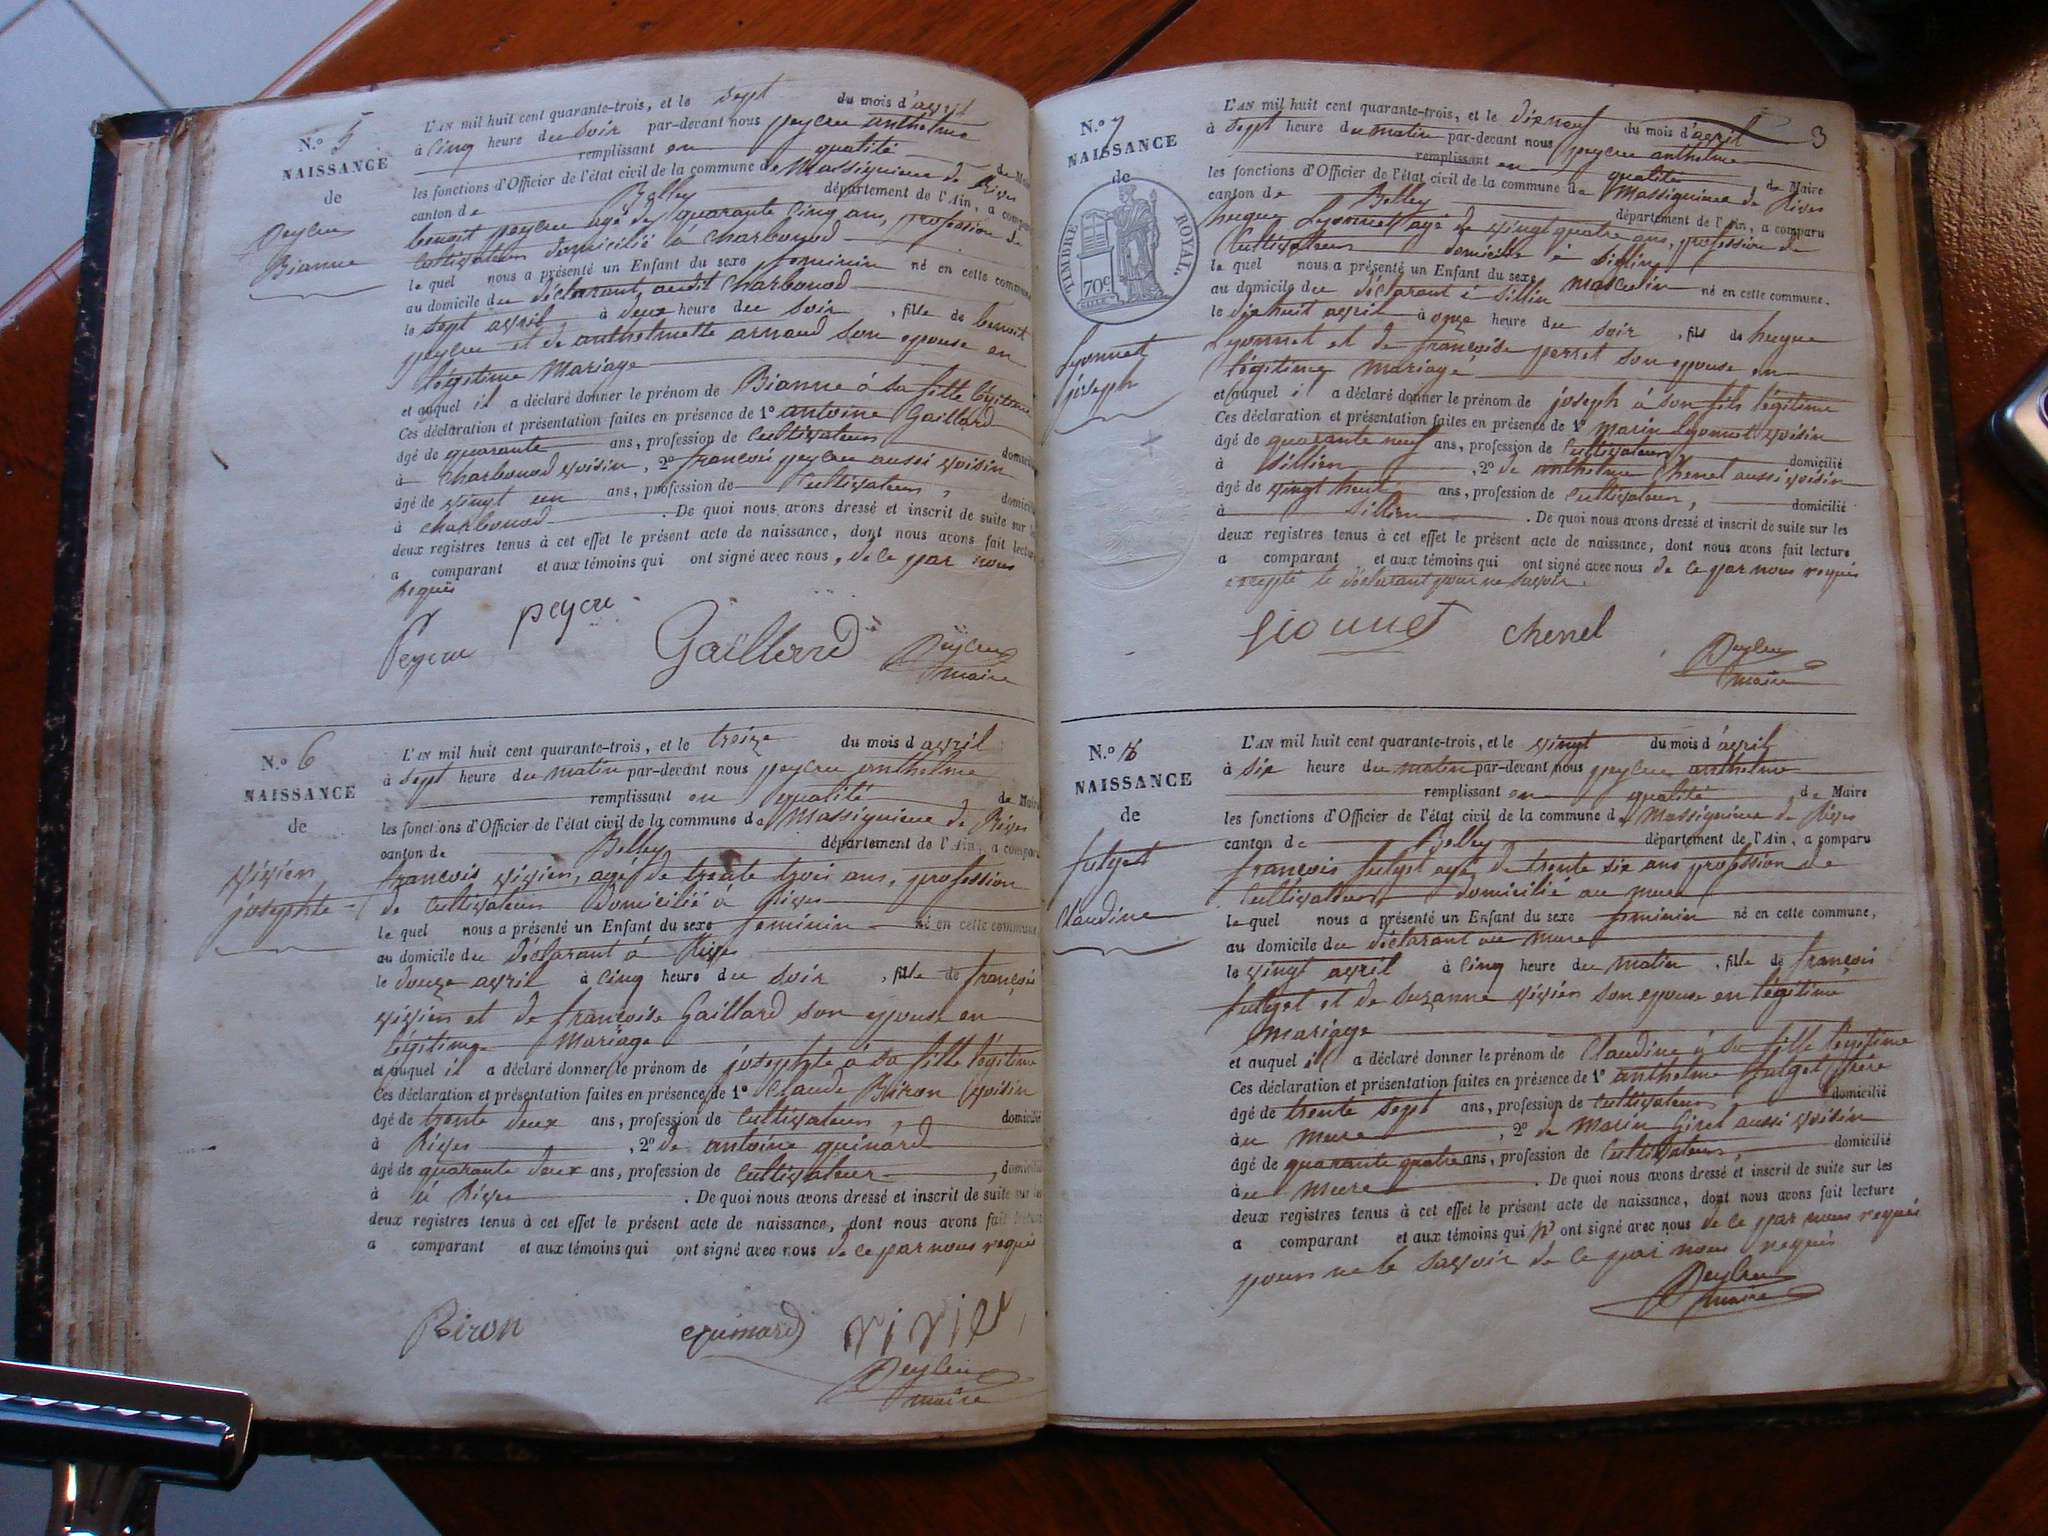 N.º 5
NAISSANCE
de
peycru
Bianne
L'AN mil huit cent quarante-trois, et le sept du mois d'avril
à cinq heure du soir par-devant nous peycru anthelme
remplissant en qualité de Maire
les fonctions d'Officier de l'état civil de la commune de Massignieu de Rives
canton de Belley département de l'Ain, a comparu
benoit peycru agé de quarante cinq ans, profession de
Cultivateur domicilié à Charbonod
le quel nous a présenté un Enfant du sexe feminin né en cette commune
au domicile du déclarant audit Charbonod
le sept avril à deux heure du soir, fille de benoit
peycru et de anthelmette arnaud son epouse en
légitime Mariage
et auquel il a déclaré donner le prénom de Bianne à sa fille légitime
Ces déclaration et présentation faites en présence de 1º antoine Gaillard
âgé de quarante ans, profession de Cultivateur domicilié
à Charbonod voisin, 2º françois peycru aussi voisin
âgé de vingt un ans, profession de Cultivateur, domicilié
à charbonod. De quoi nous avons dressé et inscrit de suite sur les
deux registres tenus à cet effet le présent acte de naissance, dont nous avons fait lecture
a comparant et aux témoins qui ont signé avec nous, de ce par nous
Requis
Peycru peycru Gaillerd Peycru
maire
N.º 6
NAISSANCE
de
vivien
josephte
L'AN mil huit cent quarante-trois, et le treize du mois d avril
à sept heure du matin par-devant nous peycru anthelme
remplissant en qualité de Maire
les fonctions d'Officier de l'état civil de la commune de Massignieu de Rives
canton de Belley département de l'Ain, a comparu
françois vivien, agé de trente trois ans, profession
de Cultivateur domicilié à Rives
le quel nous a présenté un Enfant du sexe feminin né en cette commune
au domicile du déclarant à Rives
le douze avril à cinq heure du soir, fille de françois
vivien et de françoise Gaillard son epouse en
légitime Mariage
et auquel il a déclaré donner le prénom de josephte à sa fille légitime
Ces déclaration et présentation faites en présence de 1º Claude Biron voisin
âgé de trente deux ans, profession de Cultivateur domicilié
à Rives, 2º de antoine guinard
âgé de quarante deux ans, profession de Cultivateur, domicilié
à à Rives. De quoi nous avons dressé et inscrit de suite sur les
deux registres tenus à cet effet le présent acte de naissance, dont nous avons fait lecture
a comparant et aux témoins qui ont signé avec nous de ce par nous requis
Biron guinard vivien
Peycru
maire
3
N.º 7
NAISSANCE
de
TIMBRE ROYAL.
70c
Lyonnet
joseph
L'AN mil huit cent quarante-trois, et le dix neuf du mois d'avril
à sept heure du matin par-devant nous peycru anthelme
remplissant en qualité de Maire
les fonctions d'Officier de l'état civil de la commune de Massignieu de Rives
canton de Belley département de l'Ain, a comparu
hugue Lyonnet agé de vingt quatre ans, profession de
Cultivateur domicilié à Sillin
le quel nous a présenté un Enfant du sexe masculin né en cette commune.
au domicile du déclarant à Sillin
le dix huit avril à onze heure du soir, fils de hugue
Lyonnet et de françoise perret son epouse en
légitime Mariage
et auquel il a déclaré donner le prénom de joseph à son fils légitime
Ces déclaration et présentation faites en présence de 1º Marin Lyonnet voisin
âgé de quarante neuf ans, profession de Cultivateur domicilié
à Sillien, 2º de anthelme Chenel aussi voisin
âgé de vingt huit ans, profession de Cultivateur, domicilié
à Sillien. De quoi nous avons dressé et inscrit de suite sur les
deux registres tenus à cet effet le présent acte de naissance, dont nous avons fait lecture
a comparant et aux témoins qui ont signé avec nous de ce par nous requis
excepté le déclarant pour ne savoir.
Lionnet chenel Peycru
maire
N.º 8
NAISSANCE
de
fulget
Claudine
L'AN mil huit cent quarante-trois, et le vingt du mois d'avril
à six heure du matin par-devant nous peycru anthelme
remplissant en qualité de Maire
les fonctions d'Officier de l'état civil de la commune de Massignieu de Rives
canton de Belley département de l'Ain, a comparu
françois fulget agé de trente six ans profession de
Cultivateur domicilié au mure
le quel nous a présenté un Enfant du sexe feminin né en cette commune,
au domicile du déclarant au mure
le vingt avril à cinq heure du matin, fille de françois
fulget et de Suzanne vivien son epouse en légitime
Mariage
et auquel il a déclaré donner le prénom de Claudine à sa fille légitime
Ces déclaration et présentation faites en présence de 1º anthelme fulget frère
âgé de trente sept ans, profession de Cultivateur domicilié
au mure, 2º de Marin Giret aussi voisin
âgé de quarante quatre ans, profession de Cultivateur, domicilié
au mure. De quoi nous avons dressé et inscrit de suite sur les
deux registres tenus à cet effet le présent acte de naissance, dont nous avons fait lecture
a comparant et aux témoins qui n' ont signé avec nous de ce par nous requis
pour ne le savoir de ce par nous requis
Peycru
maire